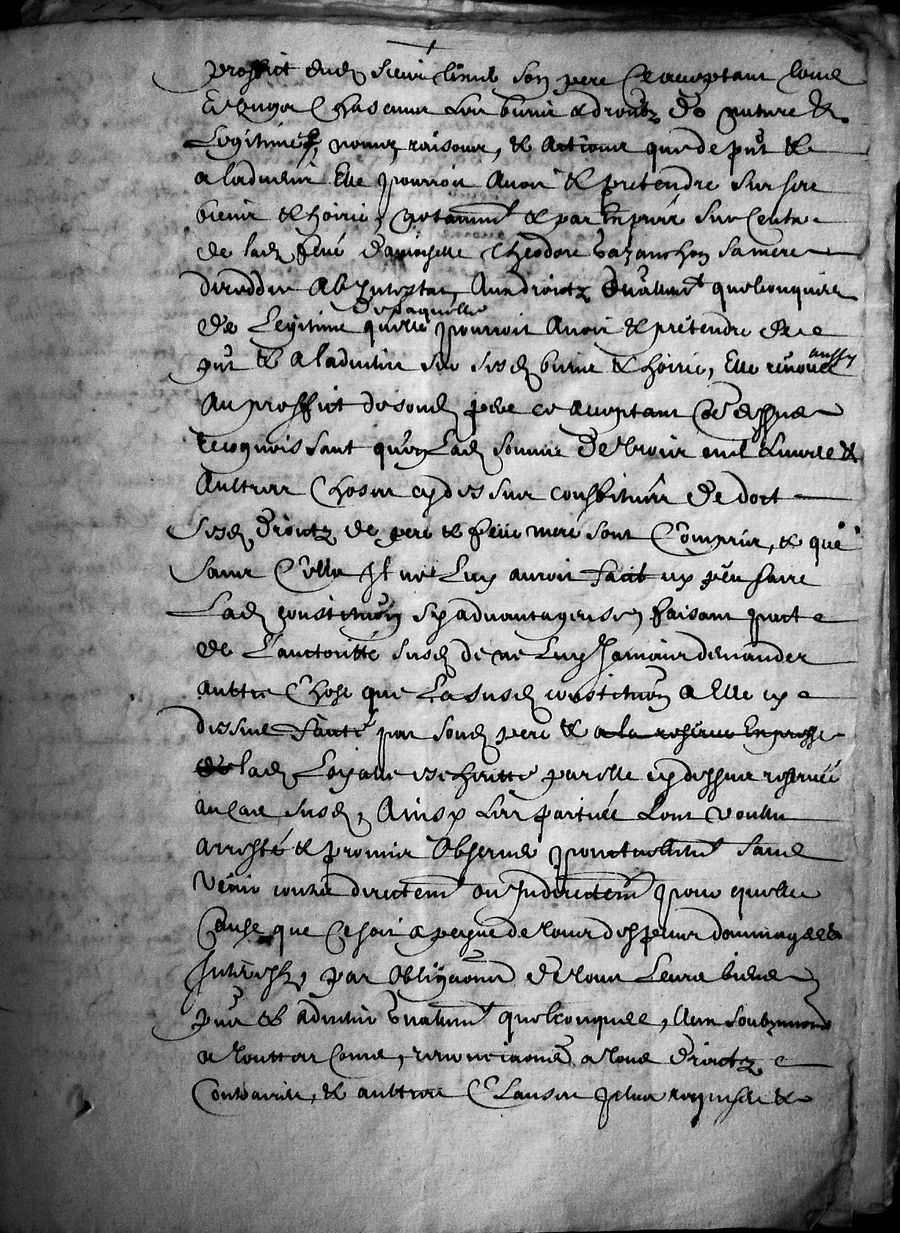 proffict dud sieur son pere ce acceptant tous
et chascuns ses biens & droictz de nature &
Legitime, noms, raisons, & actions que de pnt &
a ladvenir Elle pourroit Avoir & pretendre sur ses
biens & hoirie, notamment & par Exprés sur Ceulx
de lad feüe damoyselle Theodore sa mere
Abintestat, Aux droictz quelconques
de Legitime quelle pourroit Avoir & pretendre de
pnt & a ladvenir sur sesd biens & hoirie, Elle renonce aussy
Au proffict de sond pere ce acceptant Comme dessus
recognoissant qu'en lad somme de trois mil livres &
Aultres Choses cy dessus constituées de dot
sesd droictz de pere & feüe mere sont Comprins, & que
sans Cella Il ne Luy auroit faict ny peu faire
Lad constitution sy advantageuse, faisant pacte
de L'auctorité susd de ne Luy Jamais demander
aultre Chose que La susd constitution a Elle cy
dessus faicte par sond pere & a la reserve Expresse
de lad par elle cy dessus reservée
au cas susd, Ainsy Les parties L'ont voulu
arresté & promis Observer ponctuellement sans
Venir contre directemt ou Indirectemt pour quelle
Cause que Ce soit a peyne de tous despens dommages &
Interestz, par Obligation de tous Leurs biens
pnts & advenir quelconques, Aux soubzmissions
a touttes Cours, renonciations a tous droictz
Contraires, & aultres Clauses requises &